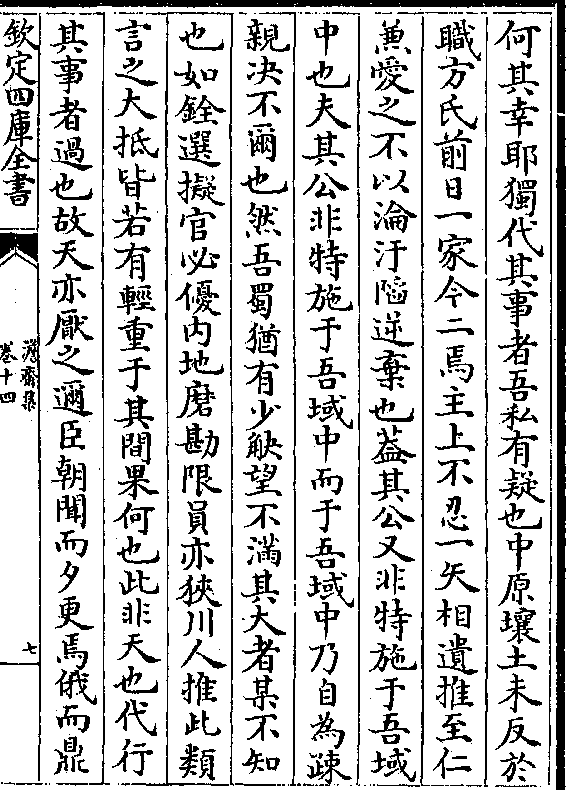 何其幸耶獨代其事者吾私有疑也中原壤土未反於
職方氏前日一家今二焉主上不忍一矢相遺推至仁
兼愛之不以淪汙陷逆棄也蓋其公又非特施于吾域
中也夫其公非特施于吾域中而于吾域中乃自為踈
親决不爾也然吾蜀猶有少觖望不滿其大者某不知
也如銓選擬官必優内地磨勘限員亦狹川人推此類
言之大抵皆若有輕重于其間果何也此非天也代行
其事者過也故天亦厭之邇臣朝聞而夕更焉俄而鼎
欽定四庫全書
卷十四
七